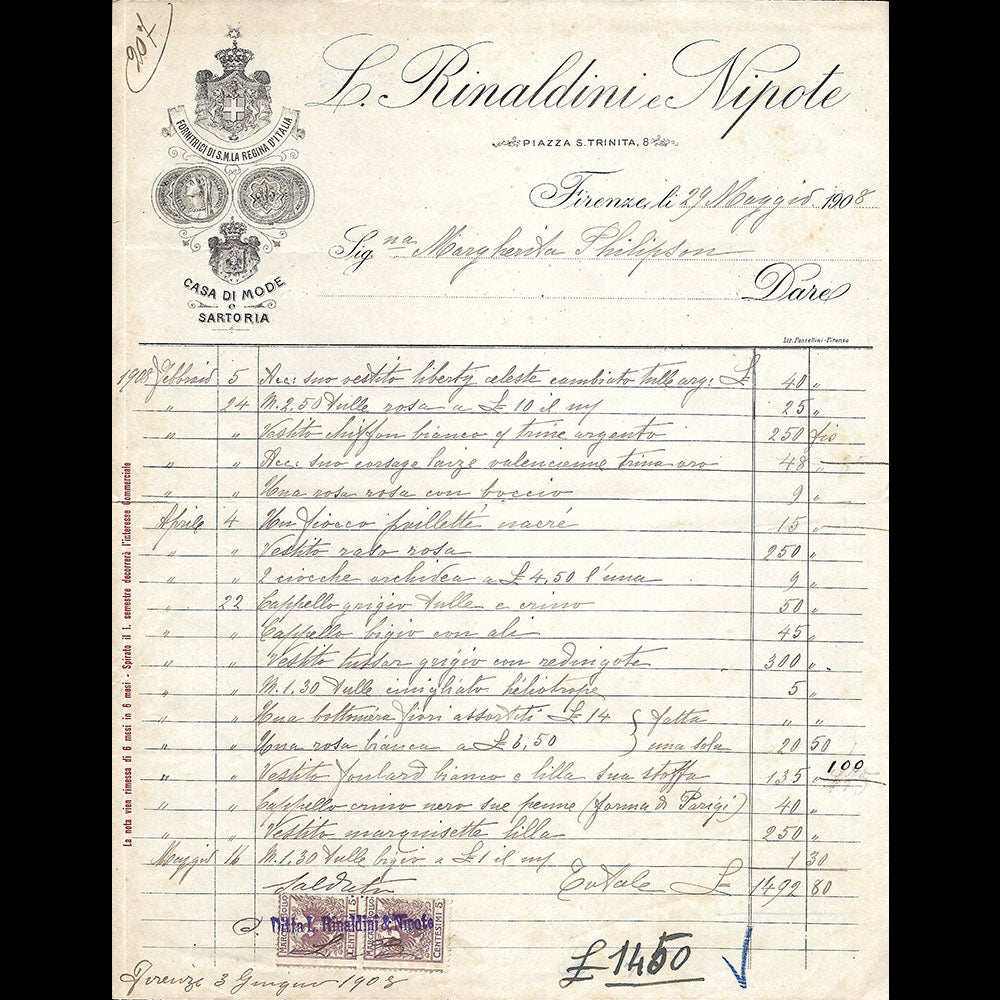 207
L. Rinaldini e Nipote
FORNITRICI DI S.M. LA REGINA D'ITALIA
PIAZZA S. TRINITA, 8
Firenze, li 29 Maggio 1908
Sig.na Margherita Philipson
Dare
CASA DI MODE
e
SARTORIA
Lit. Pastellini-Firenze
1908 Febbraio 5 Acc: suo vestito liberty celeste cambiato tulle arg: £ 40 "
" 24 M. 2.50 tulle rosa a £ 10 il m/ 25 "
" " Vestito chiffon bianco e trine argento 250
" " Acc: suo corsage laize valencienne trina oro 48 "
" " Una rosa rosa con boccio 9 "
Aprile 4 Un fiocco pailletté nacré 15 "
" " Vestito raso rosa 250 "
" " 2 ciocche orchidea a £ 4,50 l'una 9 "
" 22 Cappello grigio tulle e crino 50 "
" " Cappello bigio con ali 45 "
" " Vestito tussor grigio con redingote 300 "
" " M. 1.30 tulle héliotrope 5 "
" " Una bottoniera fiori assortiti £ 14 } fatta " "
" " Una rosa bianca a £ 6,50 } una sola 20 50
" " Vestito foulard bianco e lilla sua stoffa 135 " 100
" " Cappello crino nero sue penne (forma di Parigi) 40 "
" " Vestito marquisette lilla 250 "
Maggio 16 M. 1.30 tulle bigio a £ 1 il m/ 1 30
Saldato Totale £ 1492 80
MARCA DA BOLLO CENTESIMI 5
MARCA DA BOLLO CENTESIMI 5
Ditta L. Rinaldini & Nipote
£ 1450
Firenze 3 Giugno 1908
La nota vien rimessa di 6 mesi in 6 mesi - Spirato il 1. semestre decorrerà l'interesse Commerciale